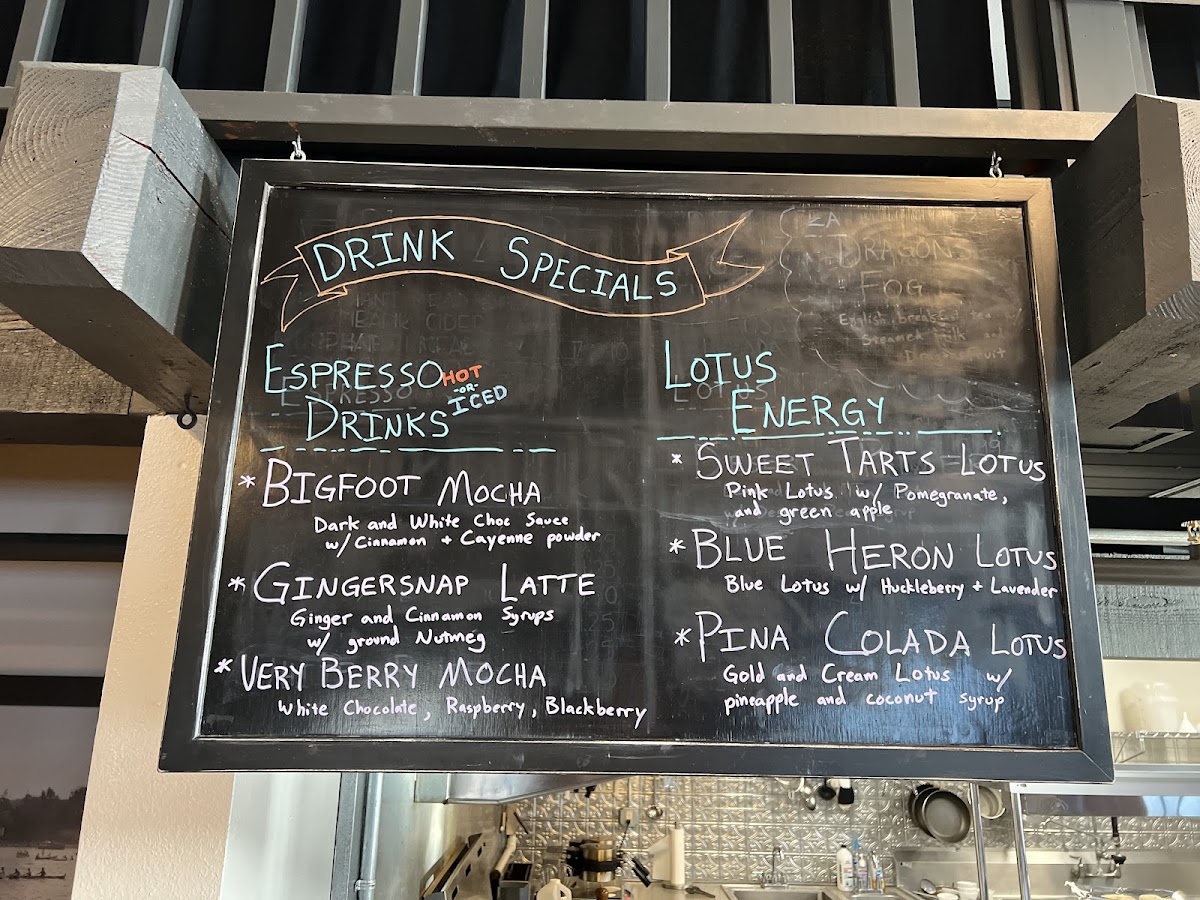 DRINK SPECIALS
ESPRESSO HOT
-OR-
DRINKS ICED
* BIGFOOT MOCHA
Dark and White Choc Sauce
w/ Cinnamon + Cayenne powder
* GINGERSNAP LATTE
Ginger and Cinnamon Syrups
w/ ground Nutmeg
* VERY BERRY MOCHA
White Chocolate, Raspberry, Blackberry
LOTUS
ENERGY
* SWEET TARTS LOTUS
Pink Lotus w/ Pomegranate,
and green apple
* BLUE HERON LOTUS
Blue Lotus w/ Huckleberry + Lavender
* PINA COLADA LOTUS
Gold and Cream Lotus w/
pineapple and coconut syrup
DRAGONS
FOG
English breakfast tea
Steamed milk and